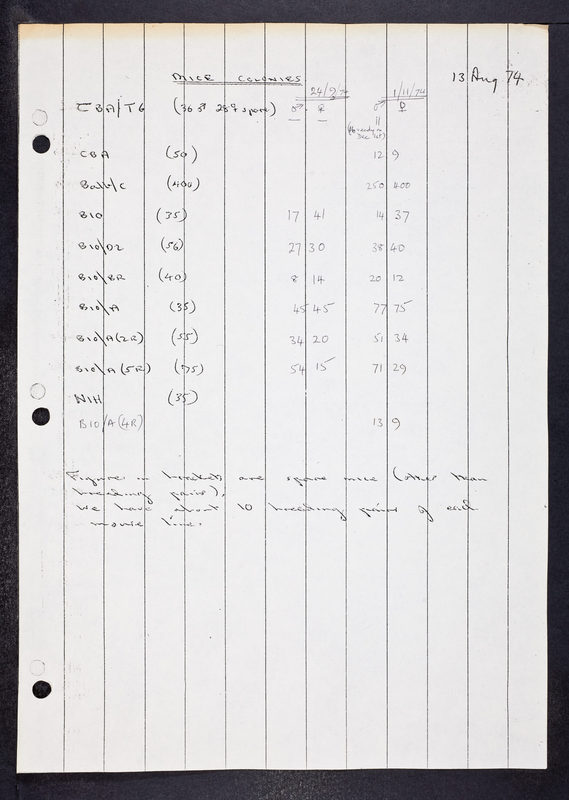 MICE COLONIES 13 Aug 74
24/9/74 1/11/74
CBA/T6 (36♂ 28♀ spare) ♂ ♀ ♂ ♀
11
ready in
Dec 1st)
CBA (50) 12 9
Balb/c (400) 250 400
B10 (35) 17 41 14 37
B10/D2 (56) 27 30 38 40
B10/BR (40) 8 14 20 12
B10/A (35) 45 45 77 75
B10/A(2R) (55) 34 20 51 34
B10/A(5R) (75) 54 15 71 29
NIH (35)
B10/A(4R) 13 9
Figures in brackets are spare mice (other than
breeding pairs).
We have about 10 breeding pairs of each
mouse line.